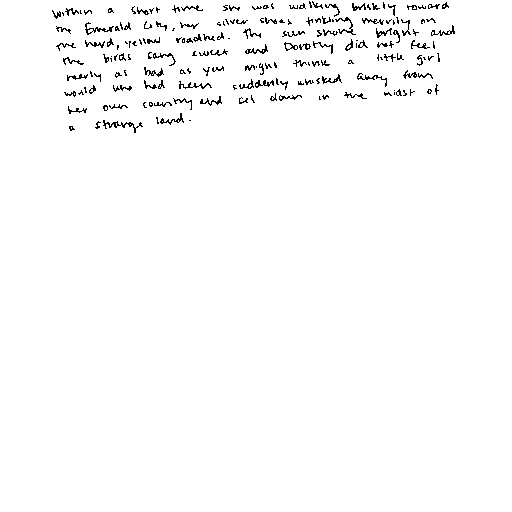 within a short time she was walking briskly toward
the Emerald City, her silver shoes tinkling merrily on
the hard, yellow roadbed. The sun shone bright and
the birds sang sweet and Dorothy did not feel
nearly as bad as you might think a little girl
would who had been suddenly whisked away from
her own country and set down in the midst of
a strange land.